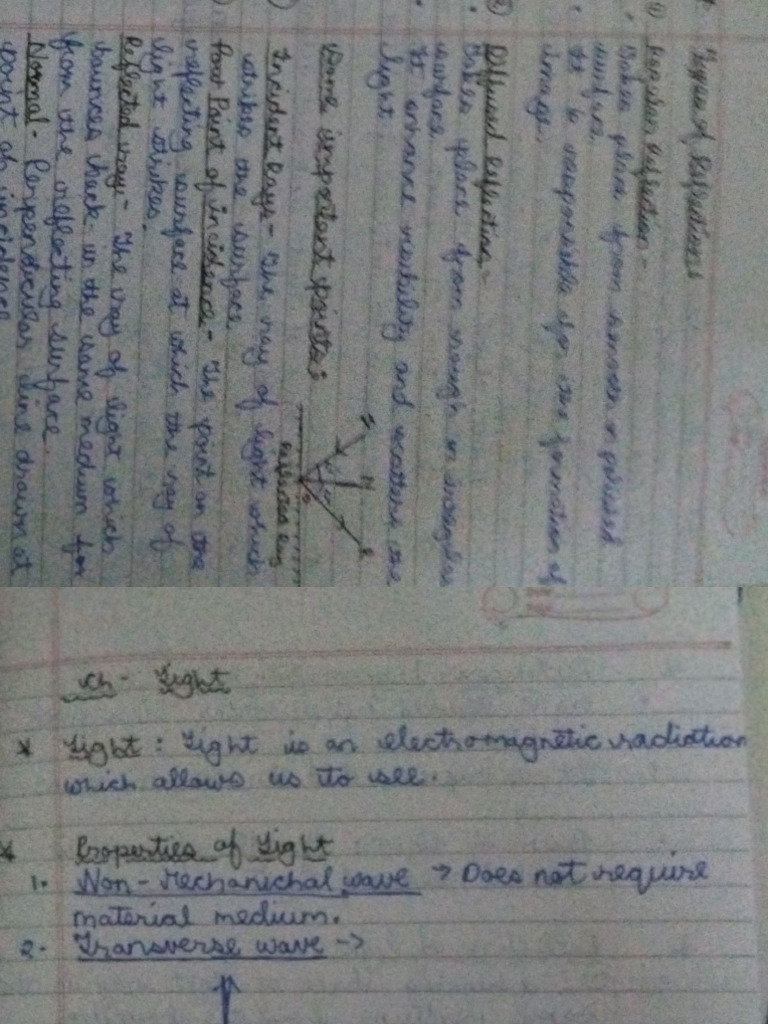 Types of Reflections
(i) Regular Reflection -
Takes place from smooth or polished
surface.
It is responsible for the formation of
image.
(ii) Diffused Reflection -
Takes place from rough or irregular
surface.
It enhance visibility and scatters the
light.
Some important points:
N
R
Incident Rays - The ray of light which
strikes the surface
Point of incidence - The point on the
reflecting surface at which the ray of
light strikes.
Reflected ray - The ray of light which
bounces back in the same medium
from the reflecting surface.
Normal - Perpendicular line drawn at
point of incidence
ch - Light
* Light : Light is an electromagnetic radiation
which allows us to see.
* Properties of Light
1. Non-Mechanichal wave → Does not require
material medium.
2. Transverse wave →